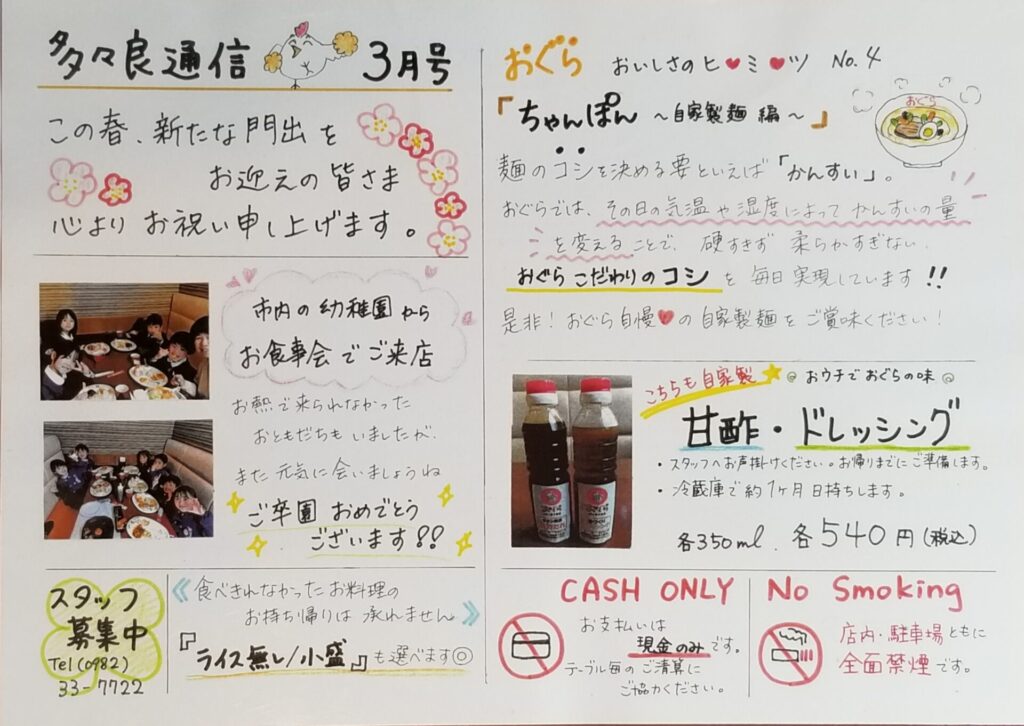 多々良通信 3月号
この春、新たな門出を
お迎えの皆さま
心より お祝い申し上げます。
市内の幼稚園から
お食事会でご来店
お熱で来られなかった
おともだちも いましたが、
また元気に会いましょうね
ご卒園 おめでとう
ございます!!
スタッフ
募集中
Tel(0982)
33-7722
《食べきれなかったお料理の
お持ち帰りは 承れません》
『ライス無し/小盛』も選べます◎
おぐら おいしさのヒ♥ミ♥ツ No.4
「ちゃんぽん ~自家製麺 編~」
おぐら
麺のコシを決める要といえば「かんすい」。
おぐらでは、その日の気温や湿度によって かんすいの量
を変えることで、硬すぎず 柔らかすぎない、
おぐらこだわりのコシを 毎日実現しています!!
是非!おぐら自慢♥の自家製麺をご賞味ください!
こちらも自家製★ @ おウチでおぐらの味 @
甘酢・ドレッシング
・スタッフへお声掛けください。お帰りまでにご準備します。
・冷蔵庫で約1ヶ月日持ちします。
各350ml. 各540円(税込)
CASH ONLY
お支払いは
現金のみです。
テーブル毎のご清算に
ご協力ください。
No Smoking
店内・駐車場ともに
全面禁煙です。